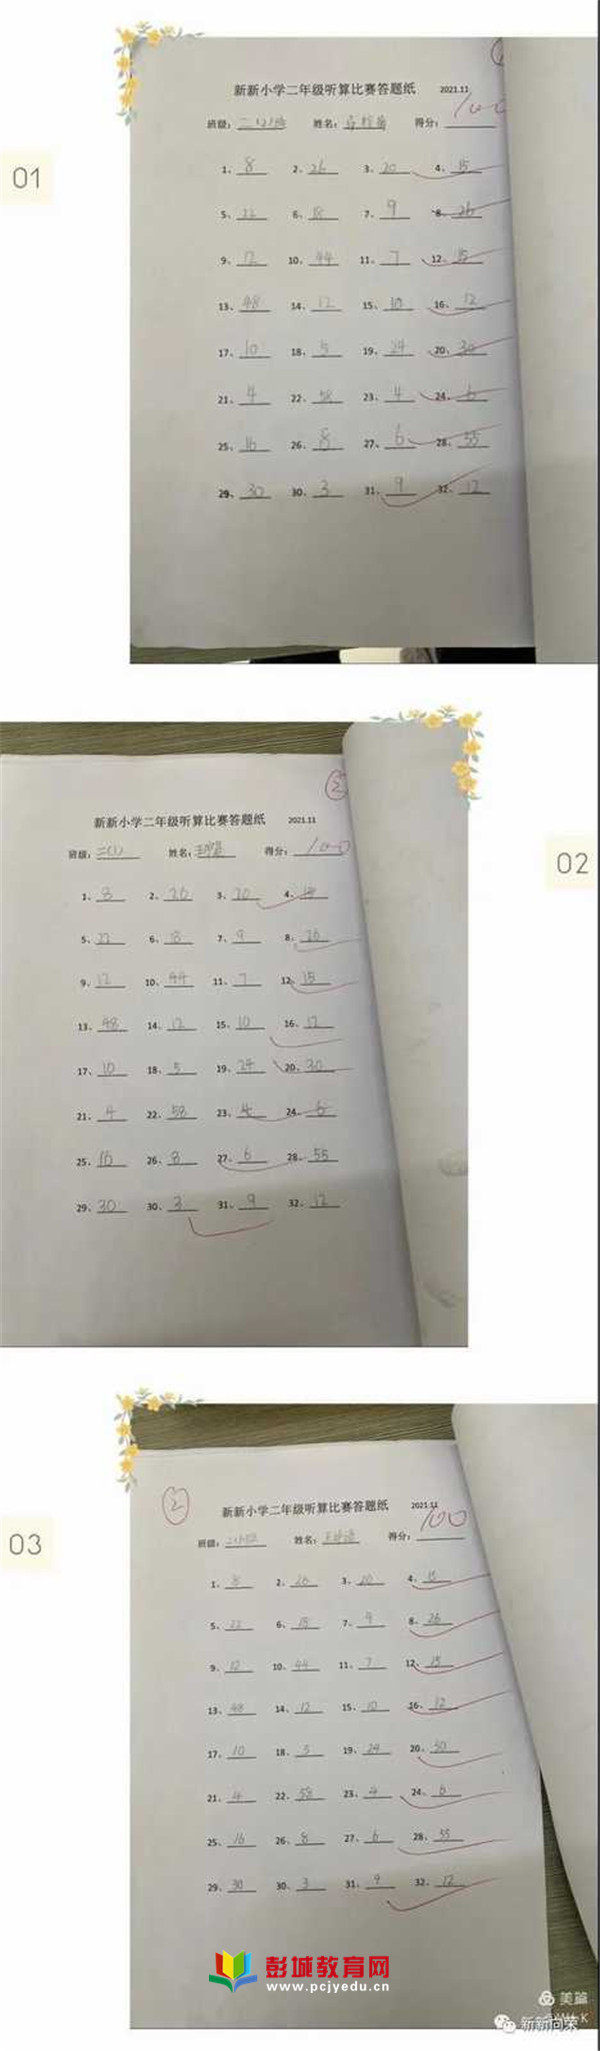 01
新新小学二年级听算比赛答题纸 2021.11
班级: 姓名: 得分: 100
1、8 2、26 3、20 4、15
5、22 6、18 7、9 8、26
9、12 10、44 11、7 12、15
13、48 14、12 15、10 16、12
17、10 18、5 19、24 20、30
21、4 22、58 23、4 24、6
25、16 26、8 27、6 28、55
29、30 30、3 31、9 32、12
02
②
新新小学二年级听算比赛答题纸 2021.11
班级:二(1) 姓名: 得分: 100
1、8 2、20 3、20 4、
5、22 6、18 7、9 8、26
9、12 10、44 11、7 12、15
13、48 14、12 15、10 16、12
17、10 18、5 19、24 20、30
21、4 22、58 23、4 24、6
25、16 26、8 27、6 28、55
29、30 30、3 31、9 32、12
03
②
新新小学二年级听算比赛答题纸 2021.11
班级: 姓名: 得分: 100
1、8 2、26 3、20 4、15
5、22 6、18 7、9 8、26
9、12 10、44 11、7 12、15
13、48 14、12 15、10 16、12
17、10 18、5 19、24 20、30
21、4 22、58 23、4 24、6
25、16 26、8 27、6 28、55
29、30 30、3 31、9 32、12
彭城教育网
www.pcjyedu.cn
美篇
新新向荣